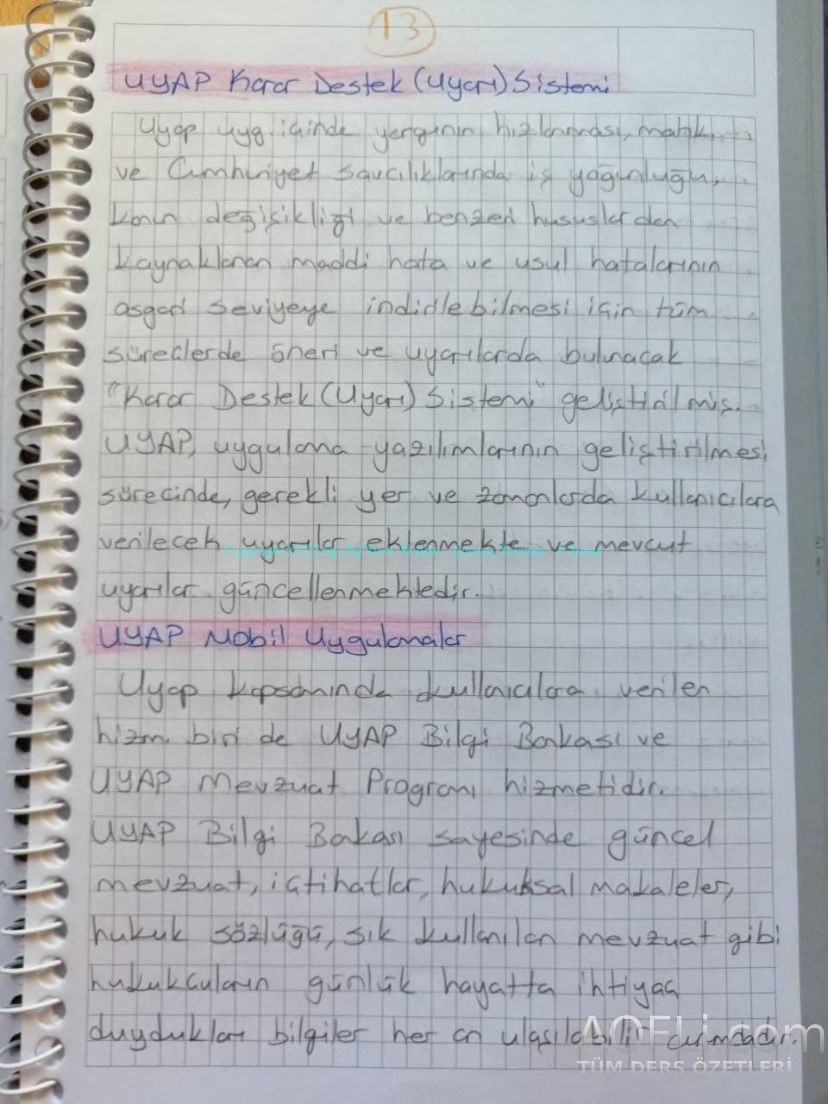 13
UYAP Karar Destek (Uyarı) Sistemi
Uyap uyg içinde yargının hızlanması, mahk.
ve Cumhuriyet savcılıklarında iş yoğunluğu,
kanun değişikliği ve benzeri hususlardan
kaynaklanan maddi hata ve usul hatalarının
asgari seviyeye indirilebilmesi için tüm
süreçlerde öneri ve uyarılarda bulunacak
"Karar Destek (Uyarı) Sistemi" geliştirilmiş.
UYAP, uygulama yazılımlarının geliştirilmesi
sürecinde, gerekli yer ve zamanlarda kullanıcılara
verilecek uyarılar eklenmekte ve mevcut
uyarılar güncellenmektedir.
UYAP Mobil Uygulamalar
Uyap kapsamında kullanıcılara verilen
hizm. biri de UYAP Bilgi Bankası ve
UYAP Mevzuat Programı hizmetidir.
UYAP Bilgi Bankası sayesinde güncel
mevzuat, içtihatlar, hukuksal makaleler,
hukuk sözlüğü, sık kullanılan mevzuat gibi
hukukçuların günlük hayatta ihtiyaç
duydukları bilgiler her an ulaşılabilir durumdadır.
AOFLi.com
TÜM DERS ÖZETLERİ